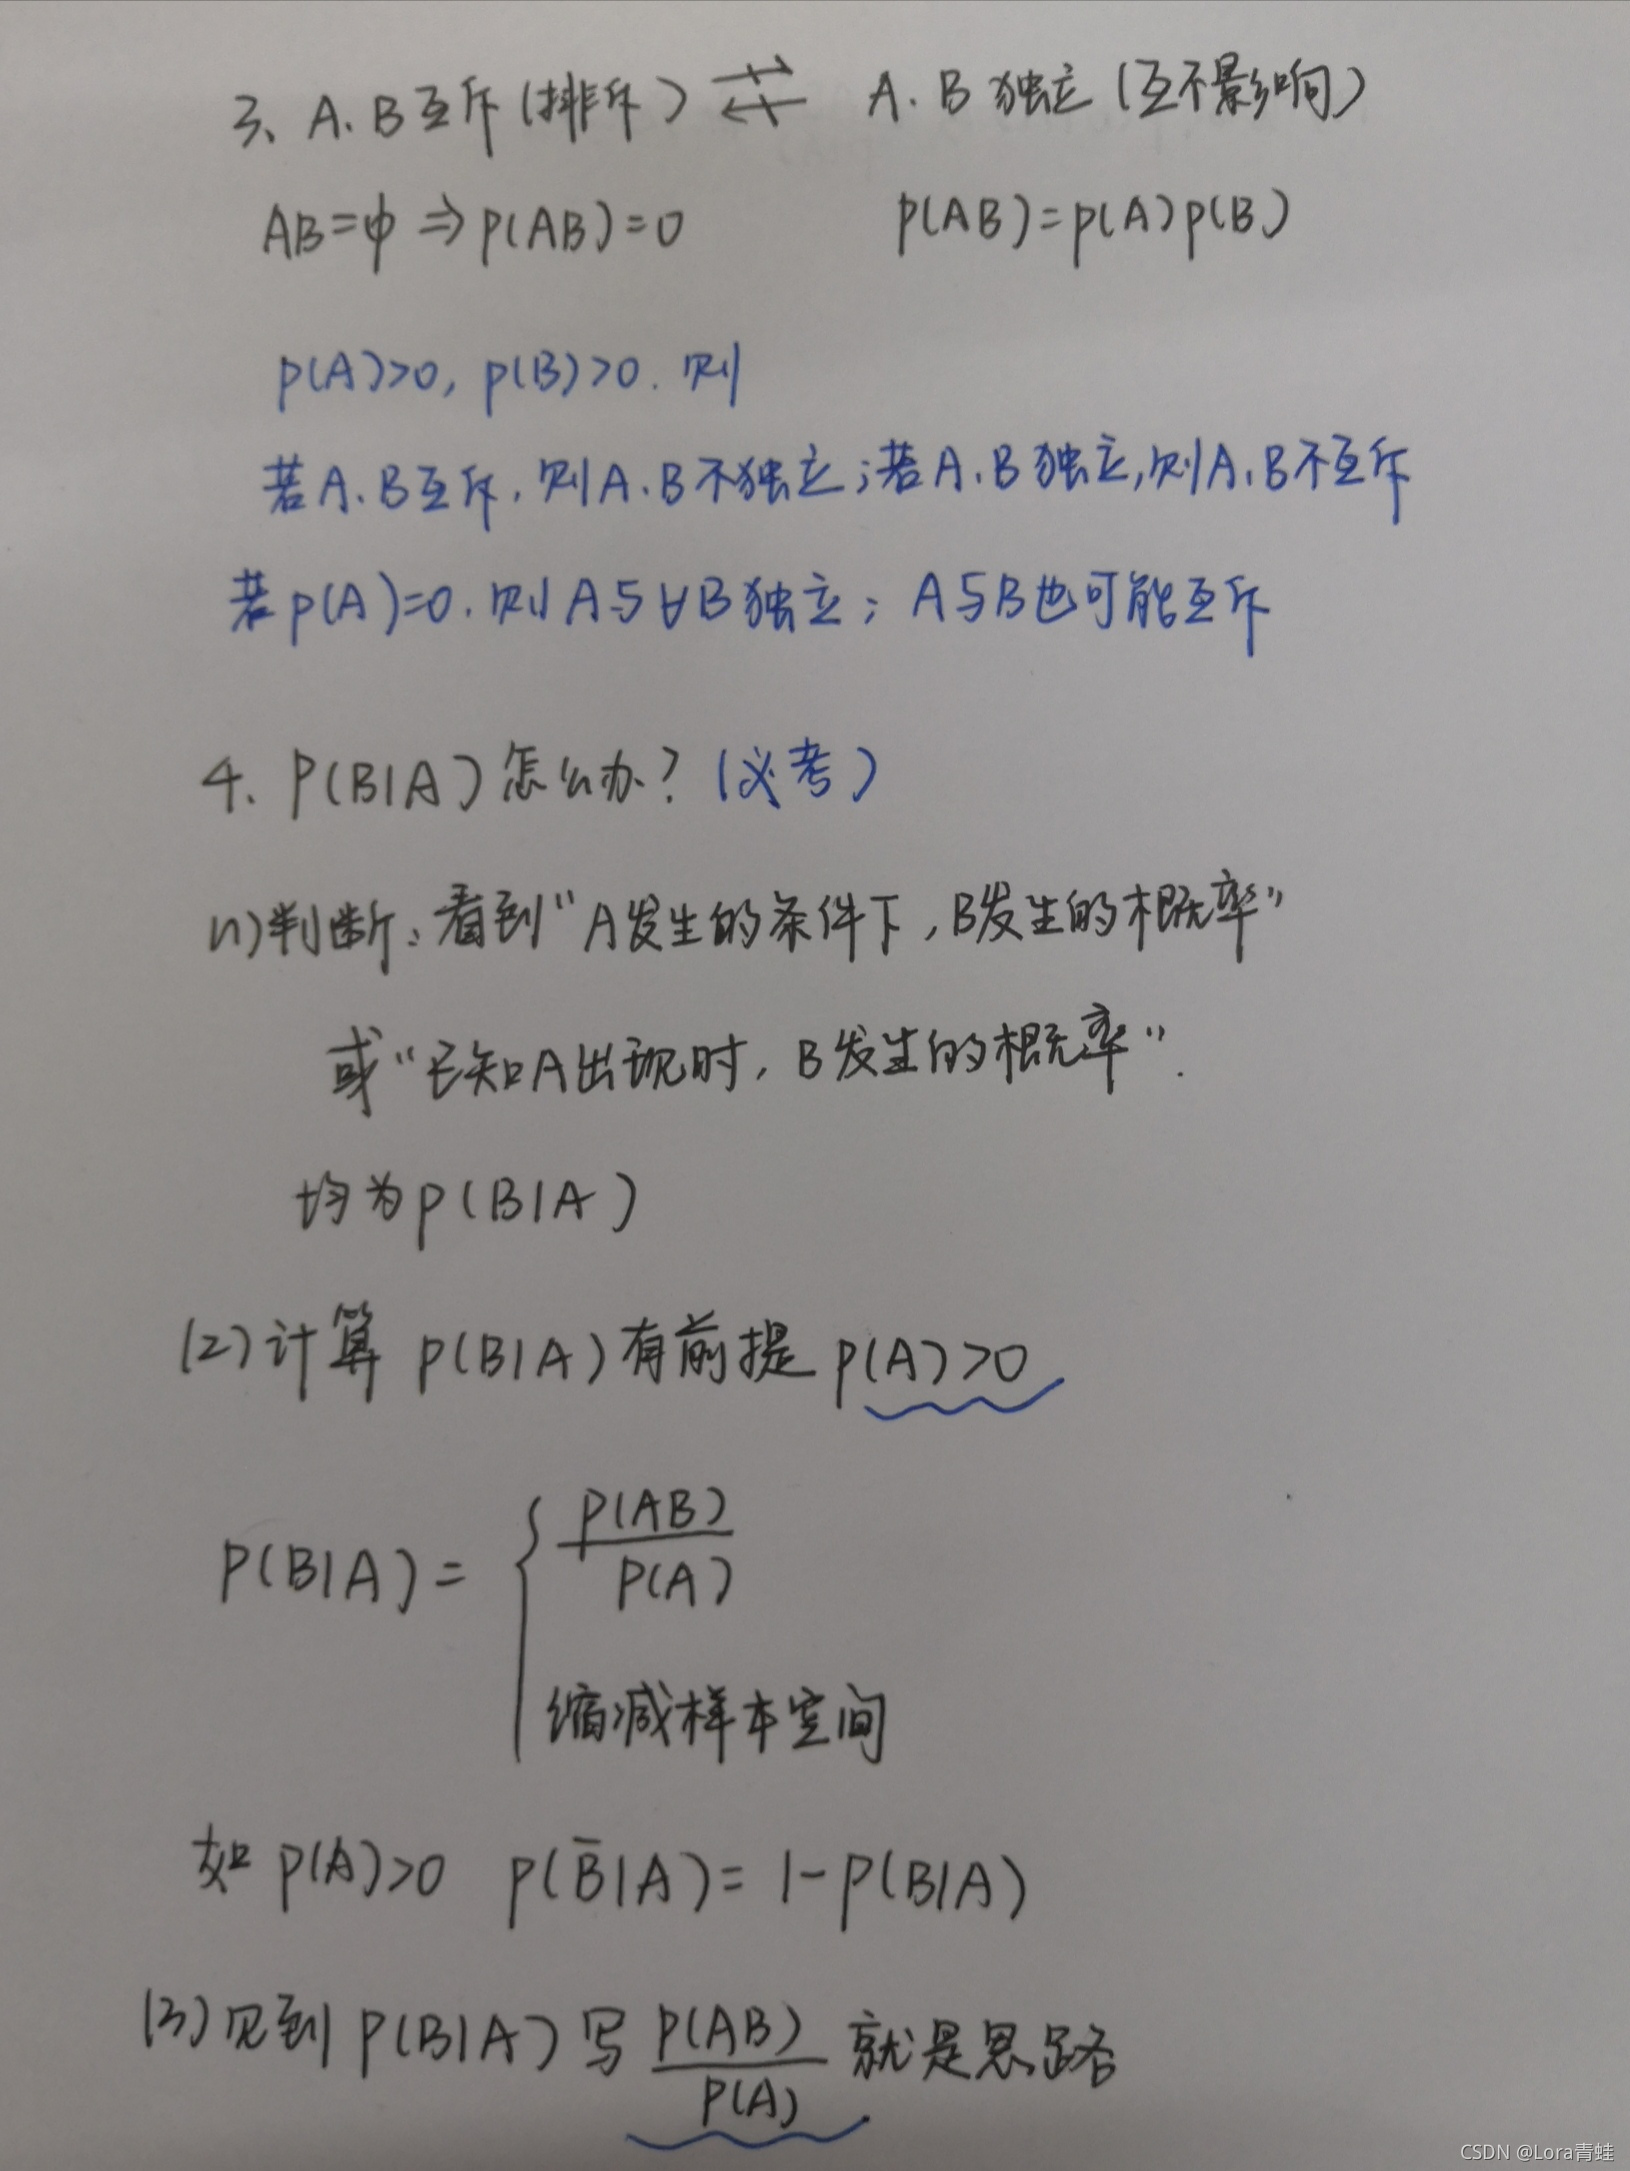 3、A.B互斥(排斥) ⇄ A.B独立(互不影响)
AB=φ⇒P(AB)=0 P(AB)=P(A)P(B)
P(A)>0,P(B)>0.则
若A.B互斥,则A.B不独立;若A.B独立,则A.B不互斥
若P(A)=0.则A与∀B独立;A与B也可能互斥
4、P(B|A)怎么办?(必考)
(1)判断:看到“A发生的条件下,B发生的概率”
或“已知A出现时,B发生的概率”.
均为P(B|A)
(2)计算P(B|A)有前提P(A)>0
P(B|A)={P(AB)/P(A)
缩减样本空间
如P(A)>0 P(B̄|A)=1-P(B|A)
(3)见到P(B|A)写P(AB)/P(A)就是思路
CSDN @Lora青蛙